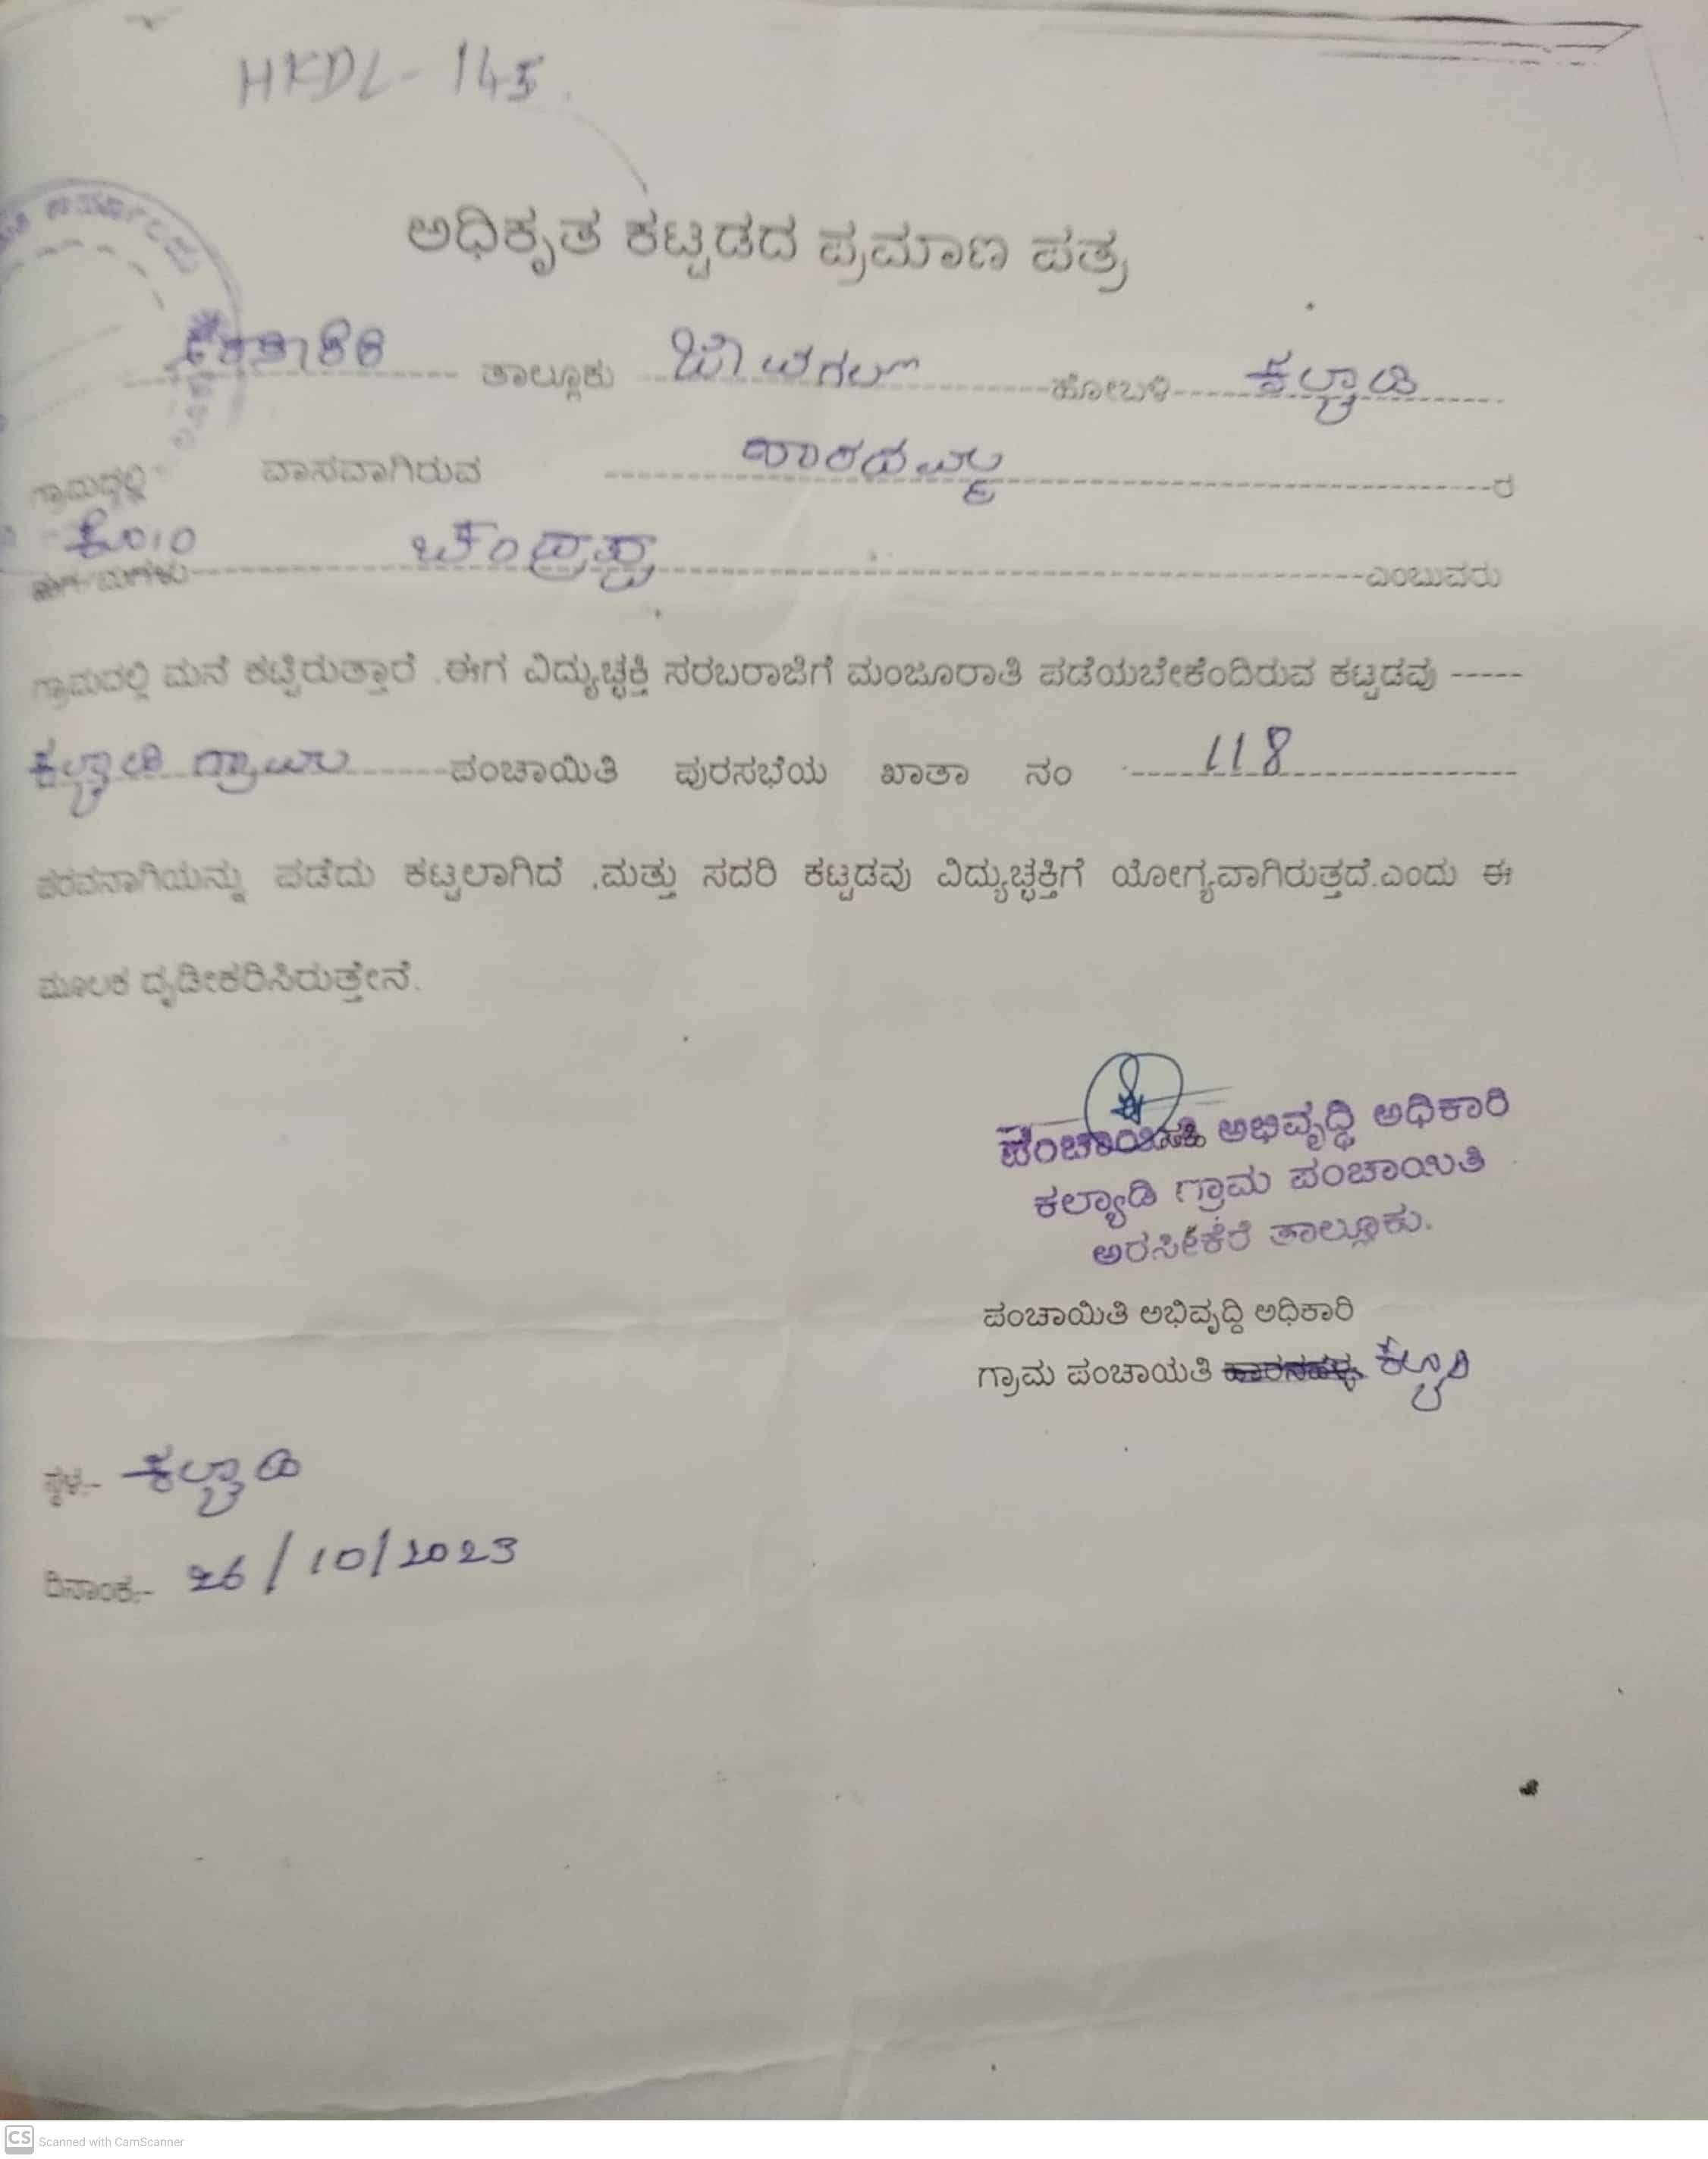 HKDL-145
ಅಧಿಕೃತ ಕಟ್ಟಡದ ಪ್ರಮಾಣ ಪತ್ರ
ತಾಲ್ಲೂಕು ಹೋಬಳಿ ಕಲ್ಯಾಡಿ
ಗ್ರಾಮದಲ್ಲಿ ವಾಸವಾಗಿರುವ ಶಾರದಮ್ಮ ರ
ಕೋಂ ಚಂದ್ರಪ್ಪ ಎಂಬುವರು
ಗ್ರಾಮದಲ್ಲಿ ಮನೆ ಕಟ್ಟಿರುತ್ತಾರೆ .ಈಗ ವಿದ್ಯುಚ್ಛಕ್ತಿ ಸರಬರಾಜಿಗೆ ಮಂಜೂರಾತಿ ಪಡೆಯಬೇಕೆಂದಿರುವ ಕಟ್ಟಡವು -----
ಕಲ್ಯಾಡಿ ಗ್ರಾಮ ಪಂಚಾಯಿತಿ ಪುರಸಭೆಯ ಖಾತಾ ನಂ 118
ಪರವನಾಗಿಯನ್ನು ಪಡೆದು ಕಟ್ಟಲಾಗಿದೆ .ಮತ್ತು ಸದರಿ ಕಟ್ಟಡವು ವಿದ್ಯುಚ್ಛಕ್ತಿಗೆ ಯೋಗ್ಯವಾಗಿರುತ್ತದೆ.ಎಂದು ಈ
ಮೂಲಕ ದೃಡೀಕರಿಸಿರುತ್ತೇನೆ.
ಪಂಚಾಯಿತಿ ಅಭಿವೃದ್ಧಿ ಅಧಿಕಾರಿ
ಕಲ್ಯಾಡಿ ಗ್ರಾಮ ಪಂಚಾಯಿತಿ
ಅರಸೀಕೆರೆ ತಾಲ್ಲೂಕು.
ಪಂಚಾಯಿತಿ ಅಭಿವೃದ್ದಿ ಅಧಿಕಾರಿ
ಗ್ರಾಮ ಪಂಚಾಯತಿ ಕಲ್ಯಾಡಿ
ಸ್ಥಳ:- ಕಲ್ಯಾಡಿ
ದಿನಾಂಕ:- 26/10/2023
CS Scanned with CamScanner